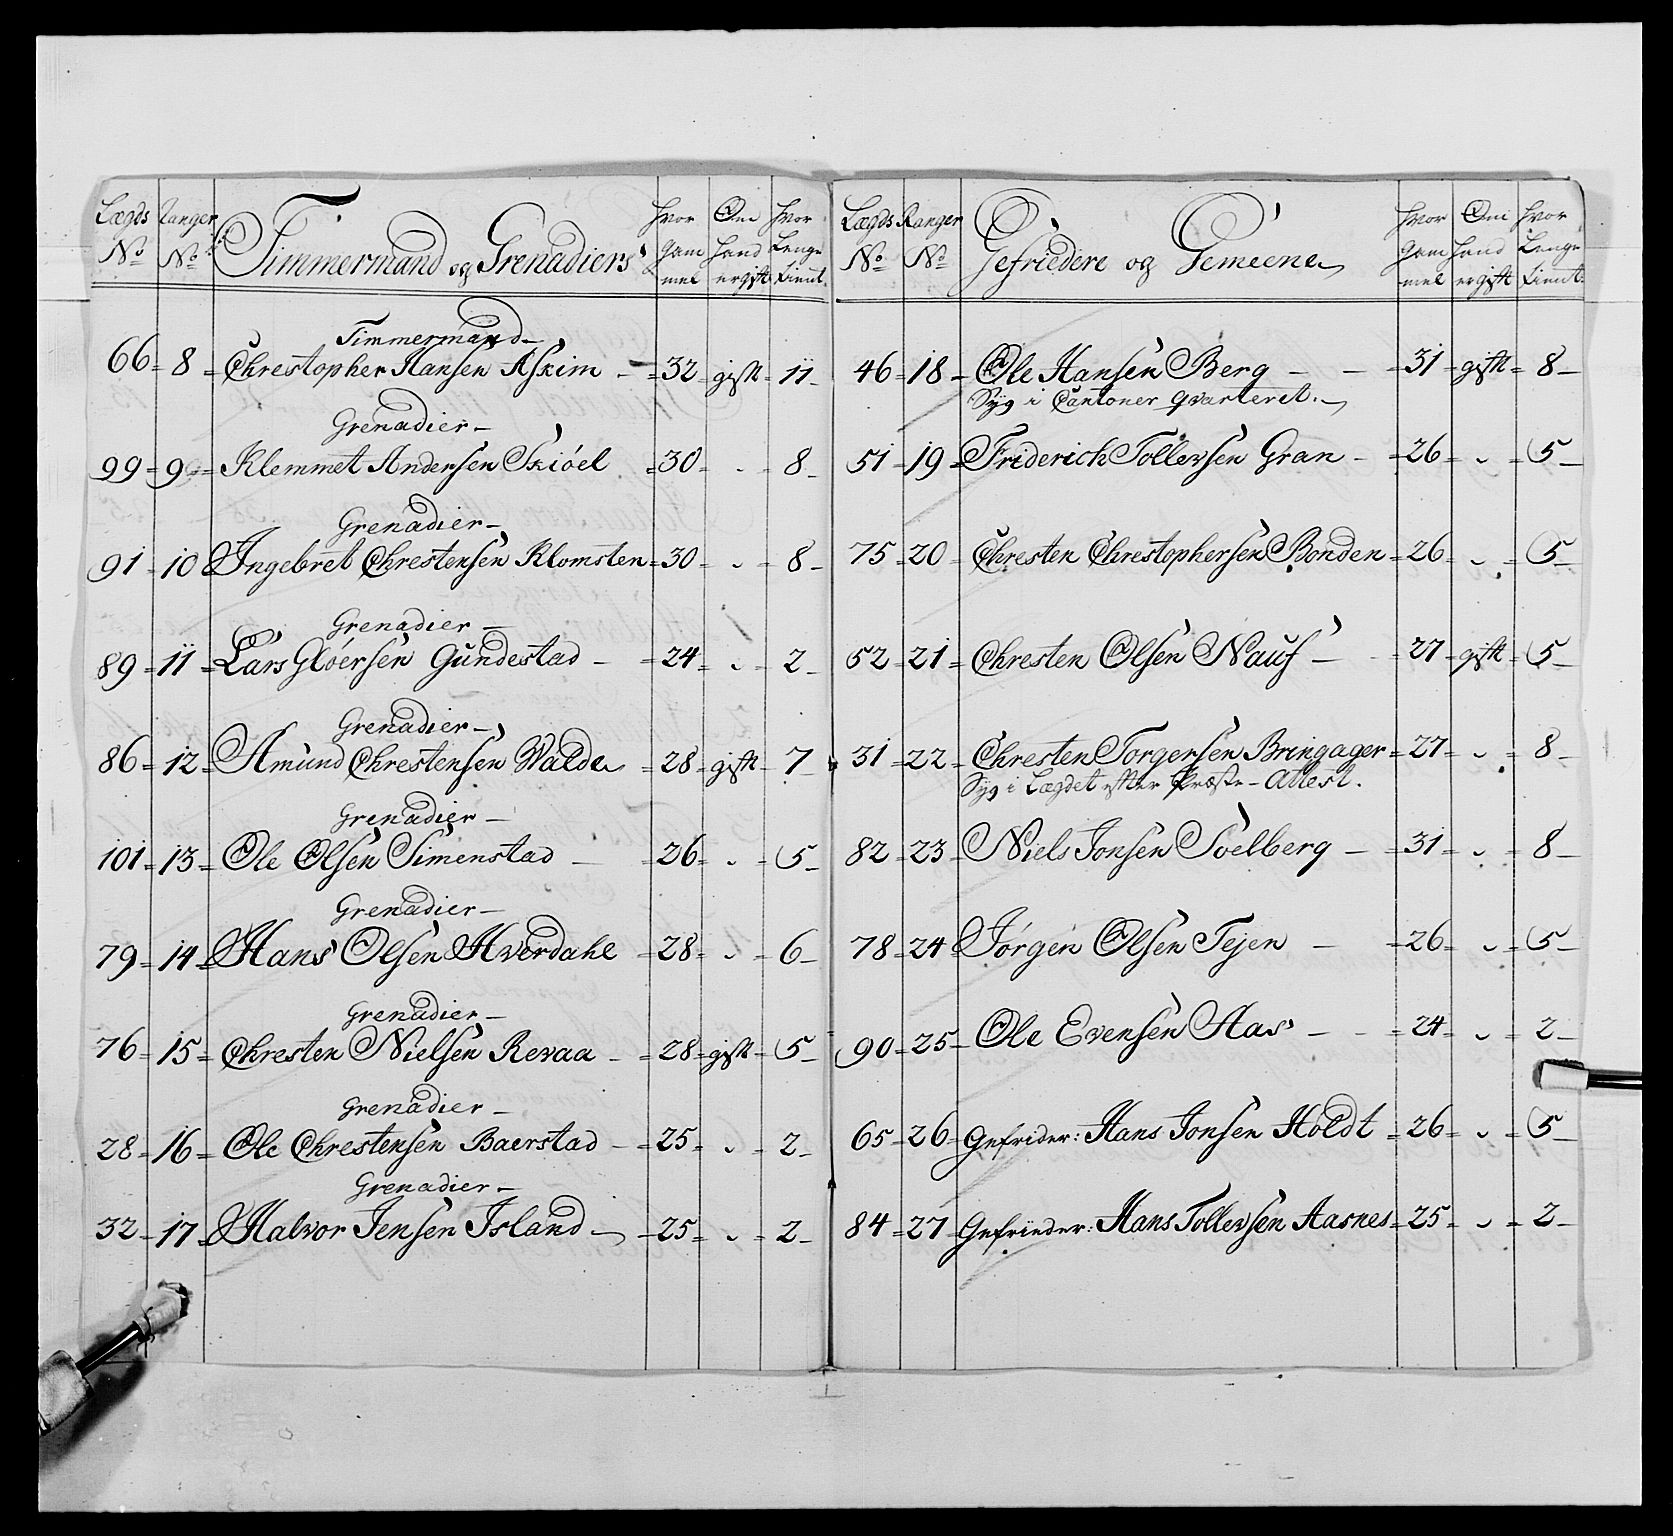 Lægds Ranger Timmermand og Grenadiers Hvor Om Hvor
No No Gam hand Lenge
mel er gift Tient.
Timmermand
66 8 Chrestopher Hansen Askim 32 gift 11
Grenadier
99 9 Klemmet Andersen Skiöel 30 " 8
Grenadier
91 10 Ingebret Chrestensen Klomsten 30 " 8
Grenadier
89 11 Lars Glöersen Gundestad 24 " 2
Grenadier
86 12 Amund Chrestensen Walde 28 gift 7
Grenadier
101 13 Ole Olsen Simenstad 26 " 5
Grenadier
79 14 Hans Olsen Hverdahl 28 " 6
Grenadier
76 15 Chresten Nielsen Revaa 28 gift 5
Grenadier
28 16 Ole Chrestensen Baerstad 25 " 2
Grenadier
32 17 Halvor Jensen Island 25 " 2
Lægds Ranger Gefriedere og Gemeene Hvor Om Hvor
No No Gam hand Lenge
mel er gift Tient.
46 18 Ole Hansen Berg 31 gift 8
Syg i Cantoner qvarteret.
51 19 Friderich Tollevsen Gran 26 " 5
75 20 Chresten Chrestophersen Bonden 26 " 5
52 21 Chresten Olsen Nauf 27 gift 5
31 22 Chresten Torgersen Bringager 27 " 8
Syg i Lægdet efter Præste-Attest.
82 23 Niels Jonsen Soelberg 31 " 8
78 24 Jörgen Olsen Tejen 26 " 5
90 25 Ole Evensen Aas 24 " 2
65 26 Gefrider: Hans Jonsen Holdt 26 " 5
84 27 Gefrieder: Hans Tollevsen Aasnes 25 " 2